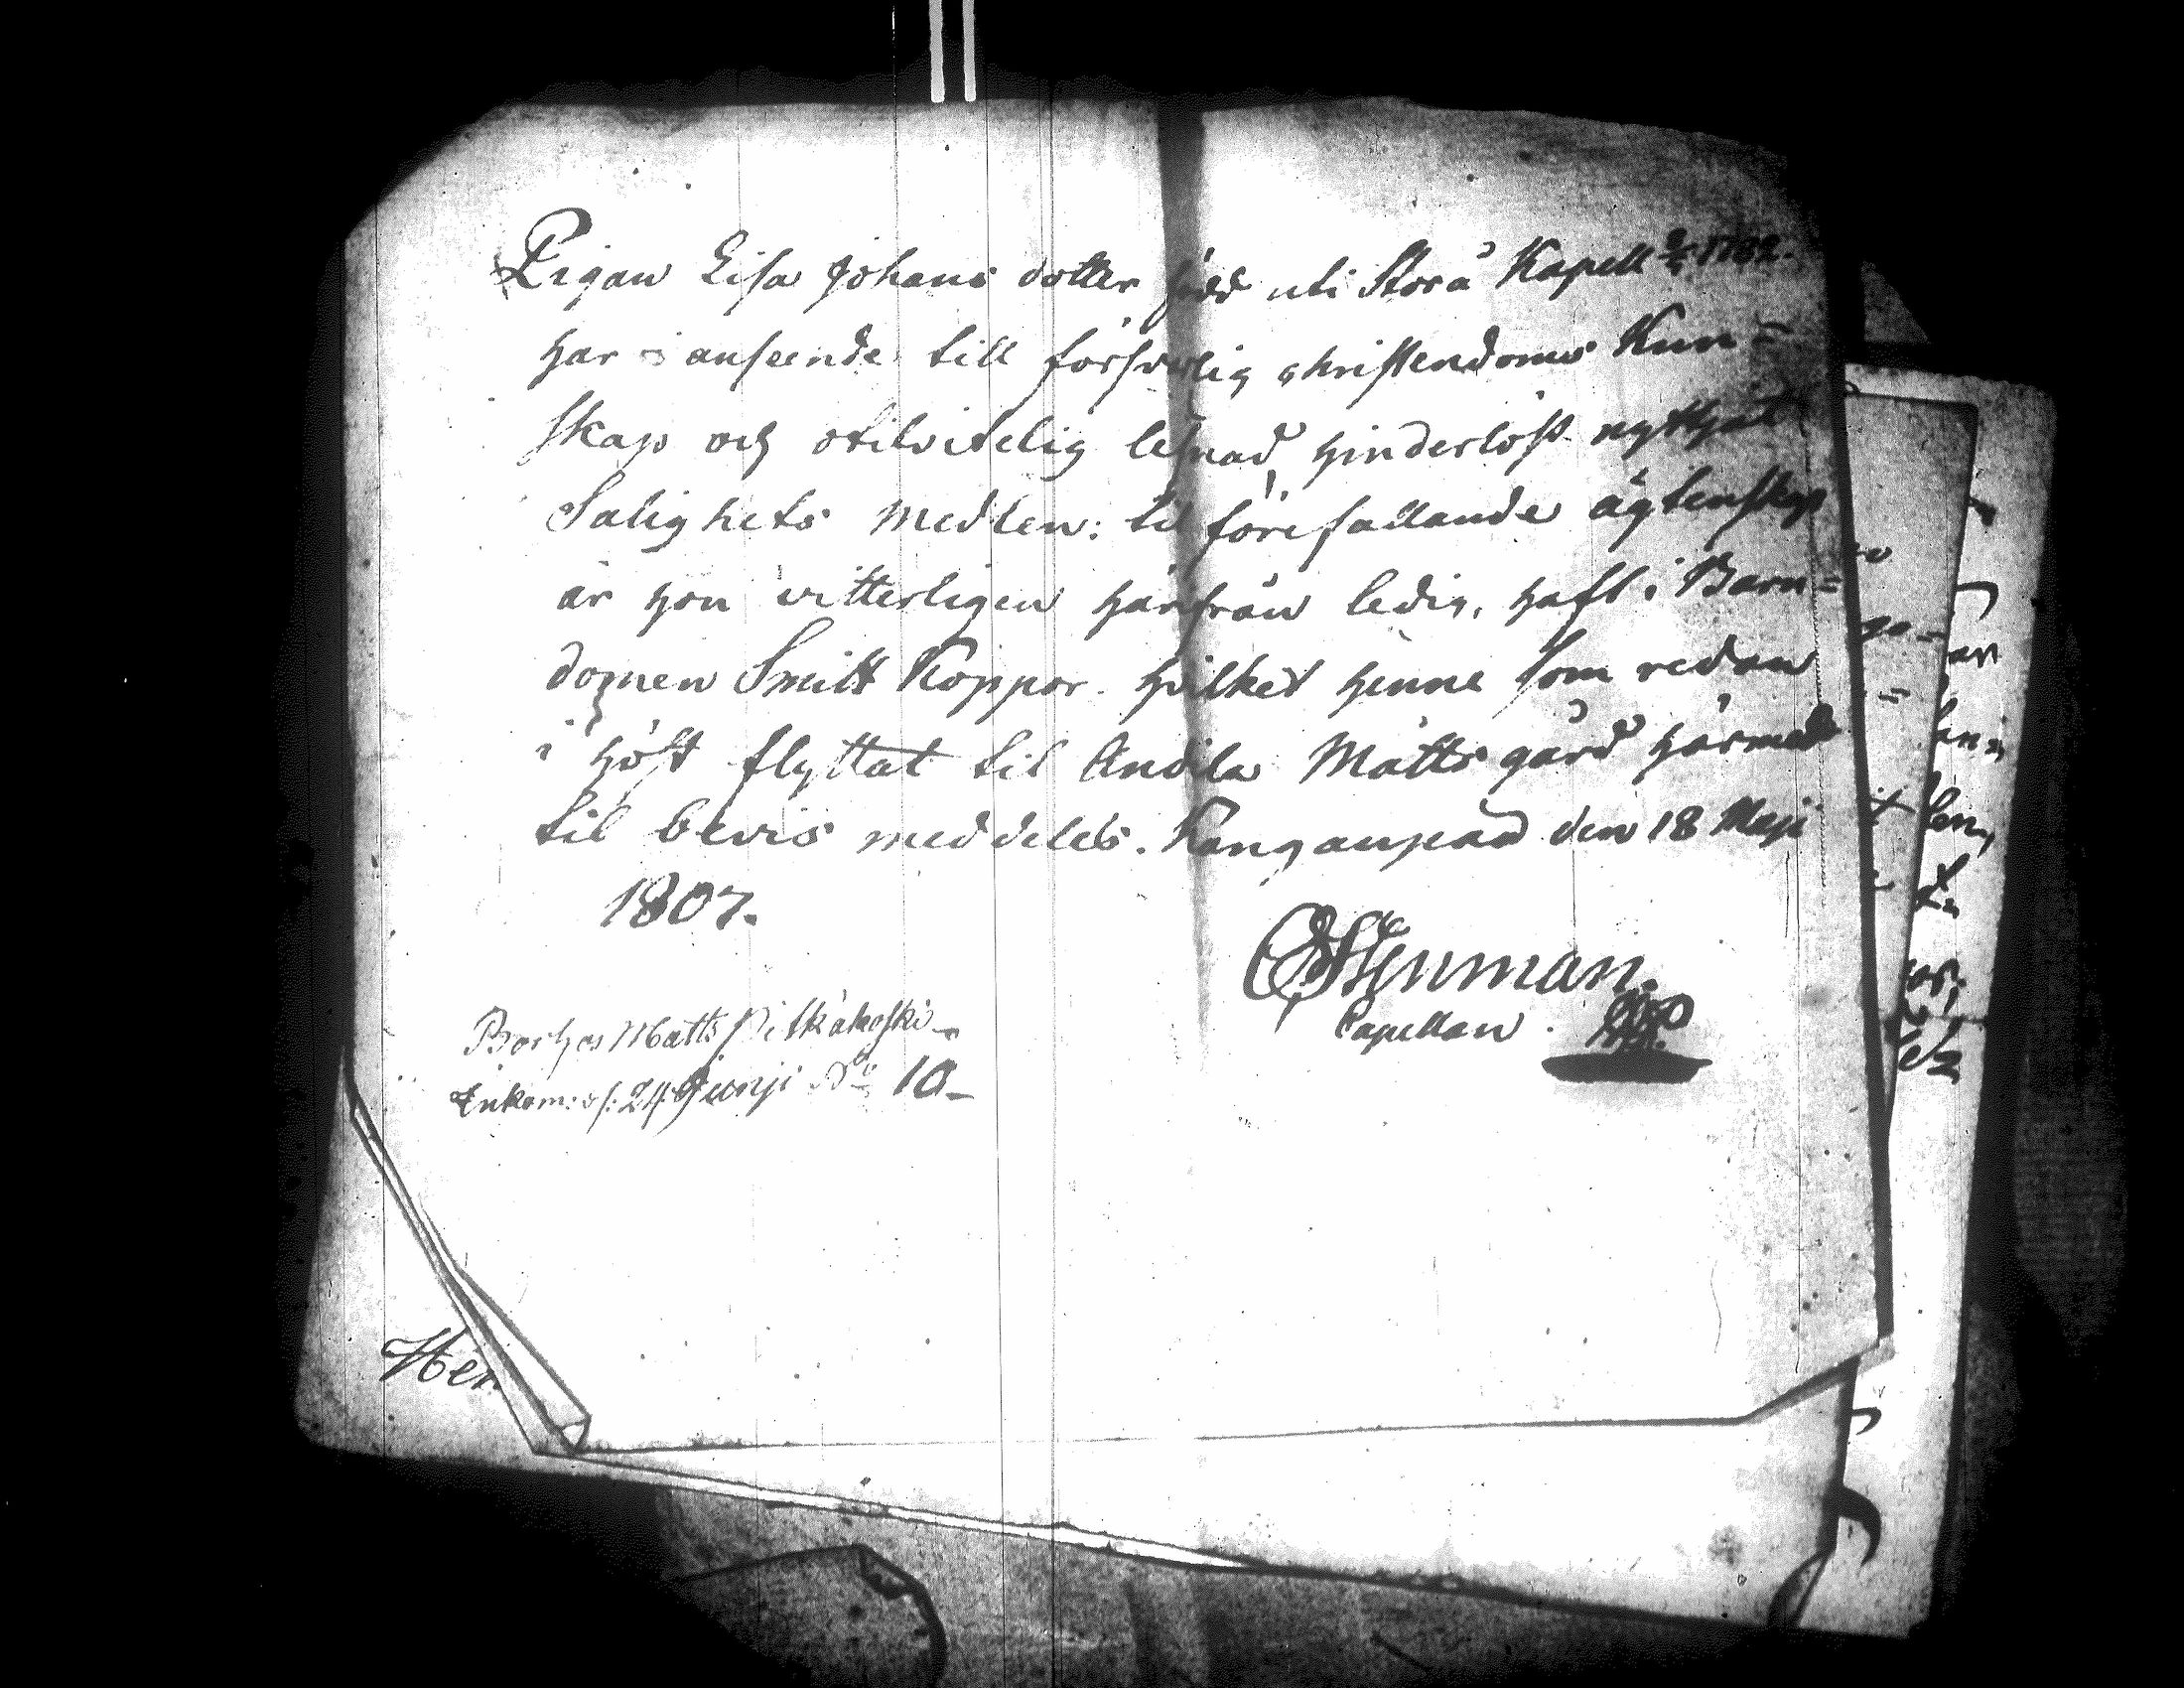 Pigan Lisa Johans dotter född uti Storå Kapell 2/4 1782.
har i anseende till försvarlig christendoms Kun=
skap och otilvitelig lefnad hinderlöst nyttjat
Salighets medlen: til förefallande ägtenskap
är hon vitterligen härifrån ledig, haft i Barn=
domen Smitt Koppor. hvilket henne som redan
i höst flyttat til Andila Matts gård härmed
til bevis meddeles. Kanganpää den 18 Maji
1807.
Stenman.
Capellan.
Borhos Matts Pitkäkoski
Inkom: 24 Junji No 10
Hen